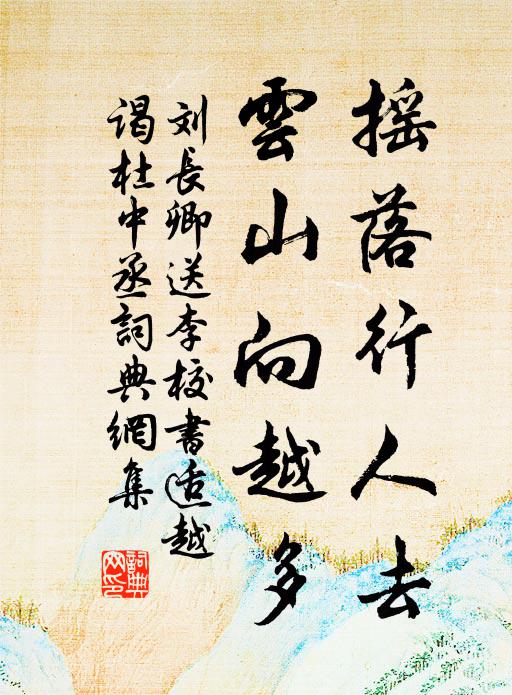 摇落行人去
雲山向越多
刘長卿送李校書适越
谒杜中丞詞典網集
詞典网印